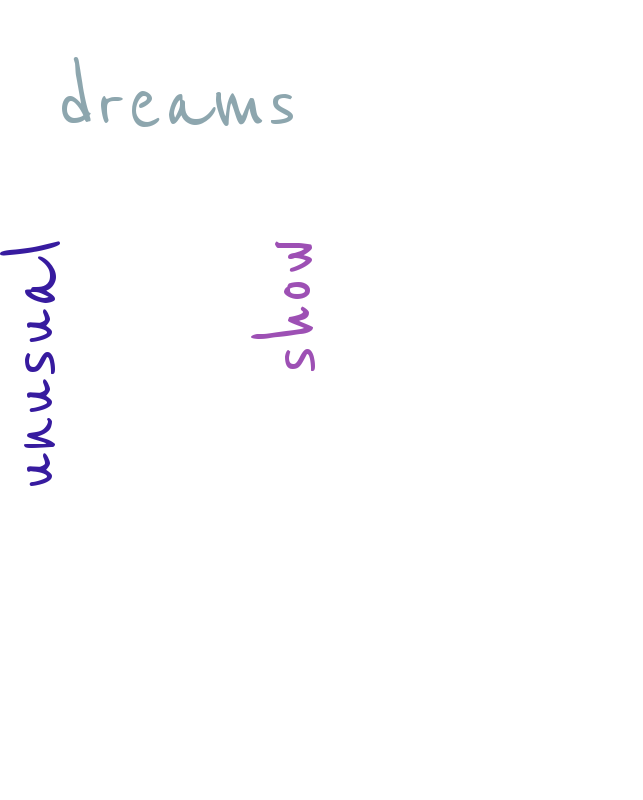 dreams
unusual
show